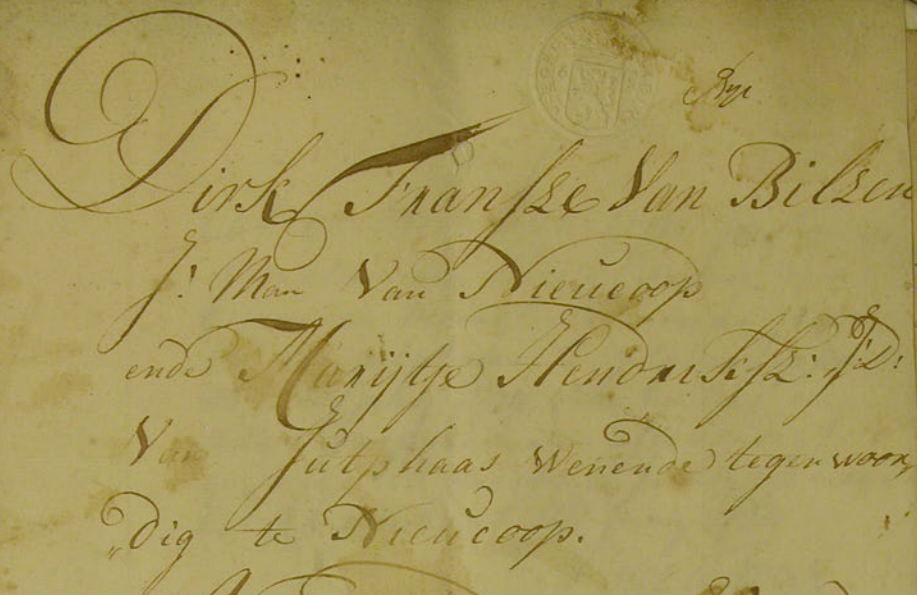 Dirk Fransze Van Bilzen
J: Man Van Nieucoop
ende Marijtje Hendriksz: J:D:
Van Jutphaas Wenende tegenwoor,
dig te Nieucoop.